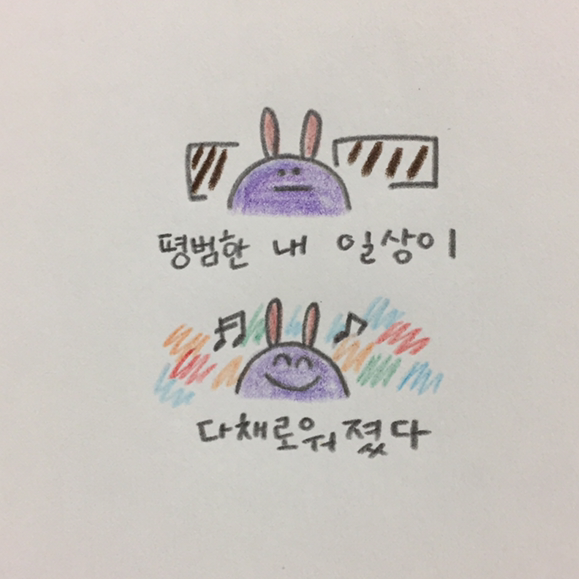 평범한 내 일상이
다채로워졌다